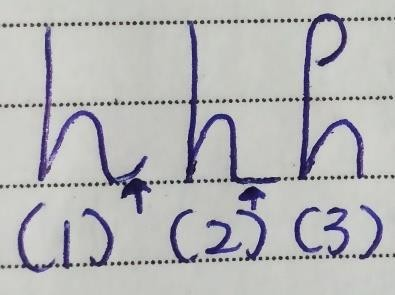 h h h
(1) (2) (3)